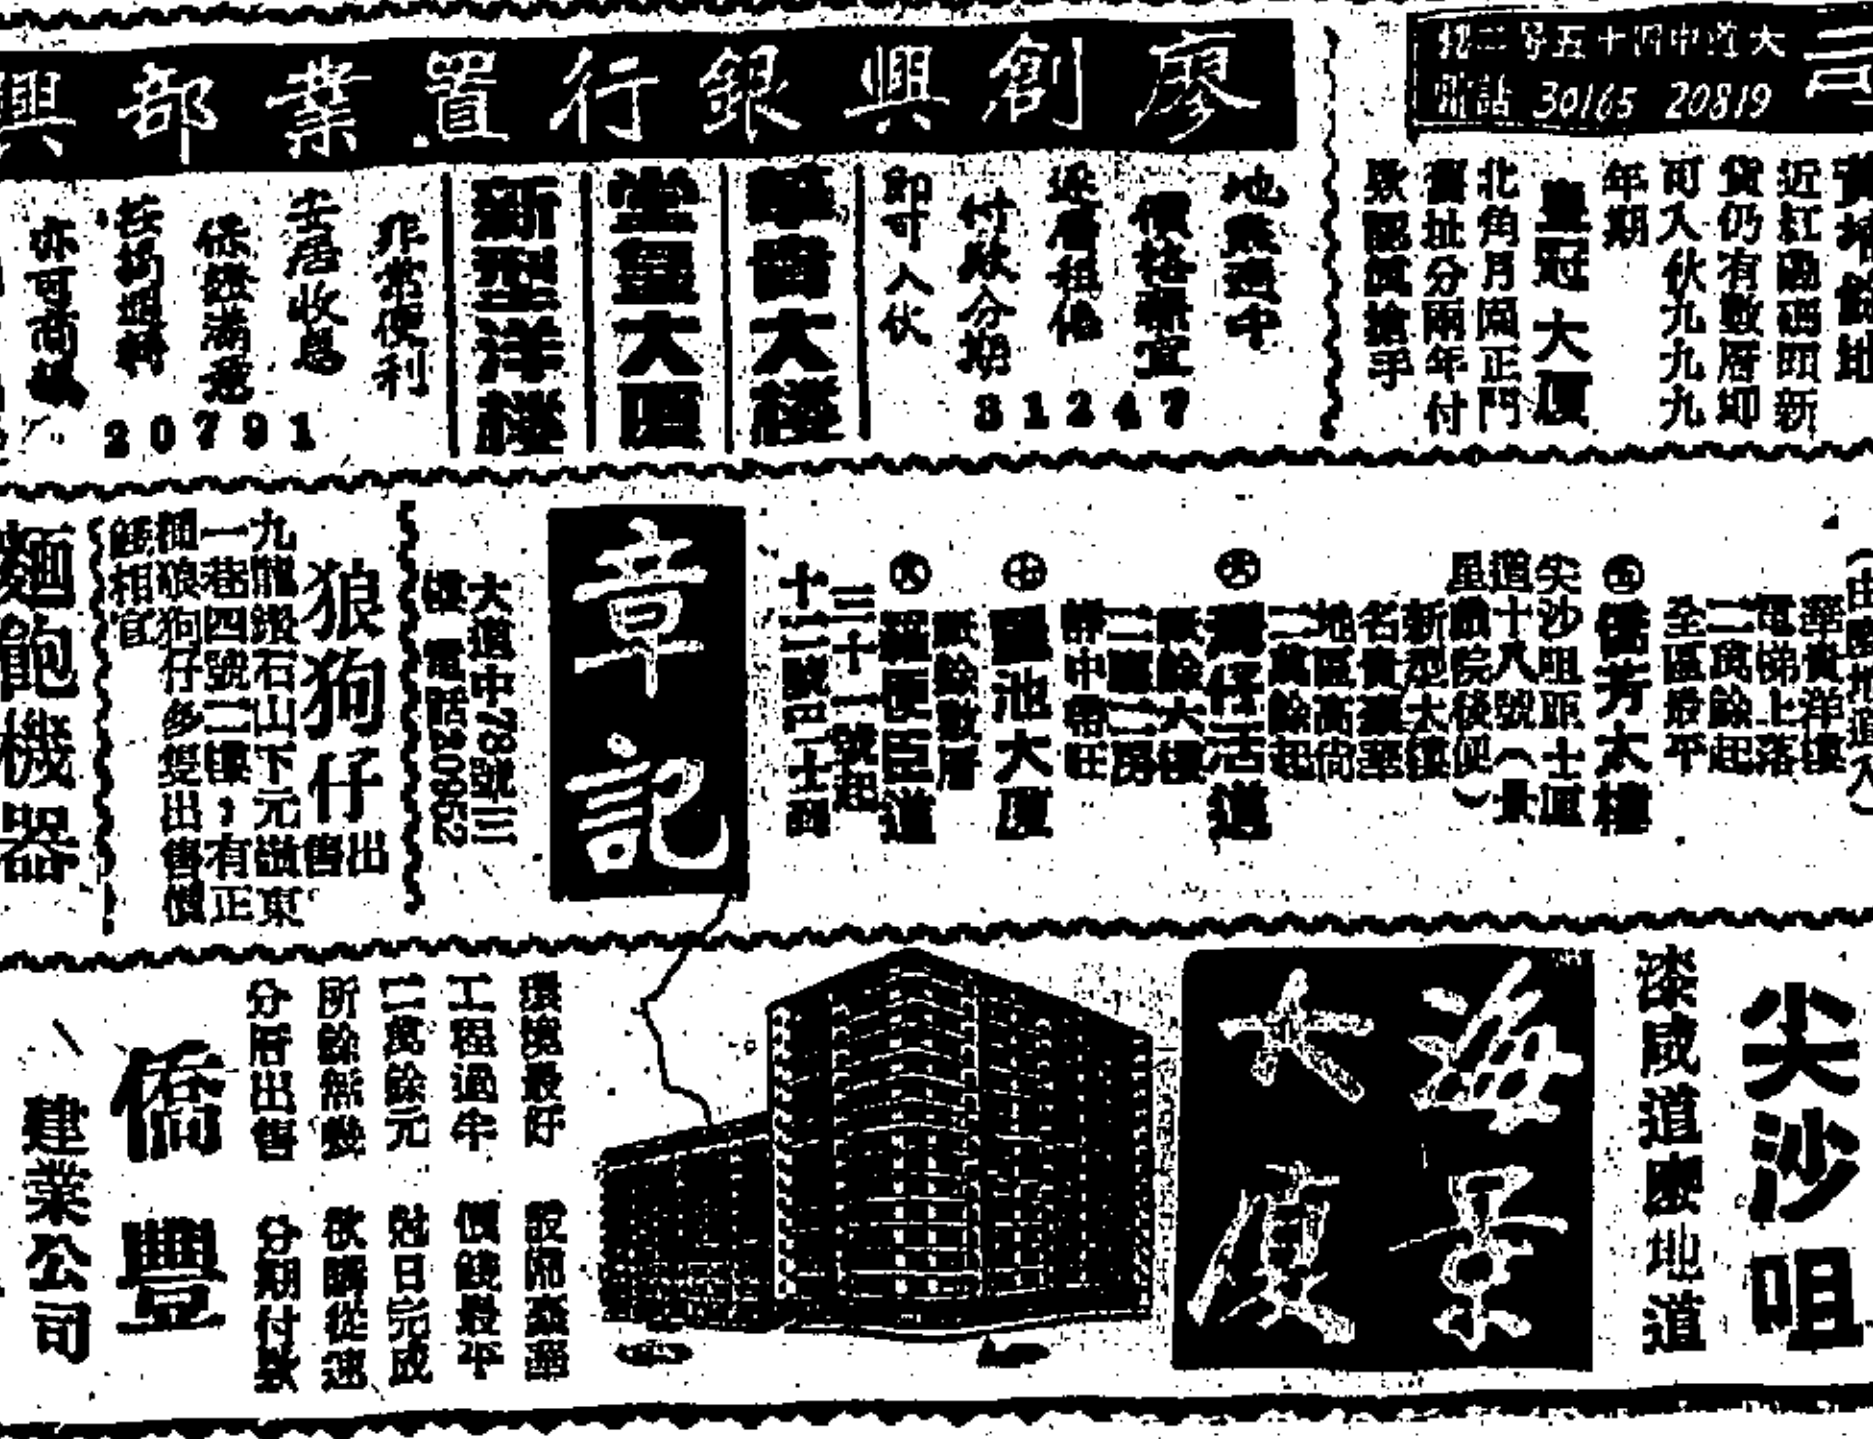 大道中四十五号二楼
電話 30165 20819
司
近紅磡碼頭新
貨仍有數層卽
可入伙九九九
年期
皇冠大厦
北角月園正門
舊址分兩年付
款認真搶手
廖創興銀行置業部
興
地點適中
價格相宜
逐層租售
付款分期
卽可入伙
31247
華香大楼
堂皇大厦
新型洋楼
非常便利
安居收息
保證滿意
按揭週轉
亦可商量
20791
華貴洋樓
電梯上落
二萬餘起
全區最平
㊄僑芳大樓
尖沙咀距士厘
道十八號(景
星戲院後便)
新型大樓
名貴豪華
地區高尚
二萬餘起
㊅灣仔活道
祗餘六樓
二廳二房
靜中帶旺
㊆鳳池大厦
祗餘數層
㊇羅便臣道
三十一號起
十二號巴士到
章記
大道中78號三
樓 電話20952
狼狗仔出售
九龍鑽石山下元嶺東
一巷四號二樓,有正
種狼狗仔多隻出售價
錢相宜
麵飽機器
尖沙咀
漆咸道麼地道
海景大廈
環境最好 設備齊全
工程過半 價錢最平
二萬餘元 尅日完成
所餘無幾 欲購從速
分層出售 分期付款
僑豐
建業公司